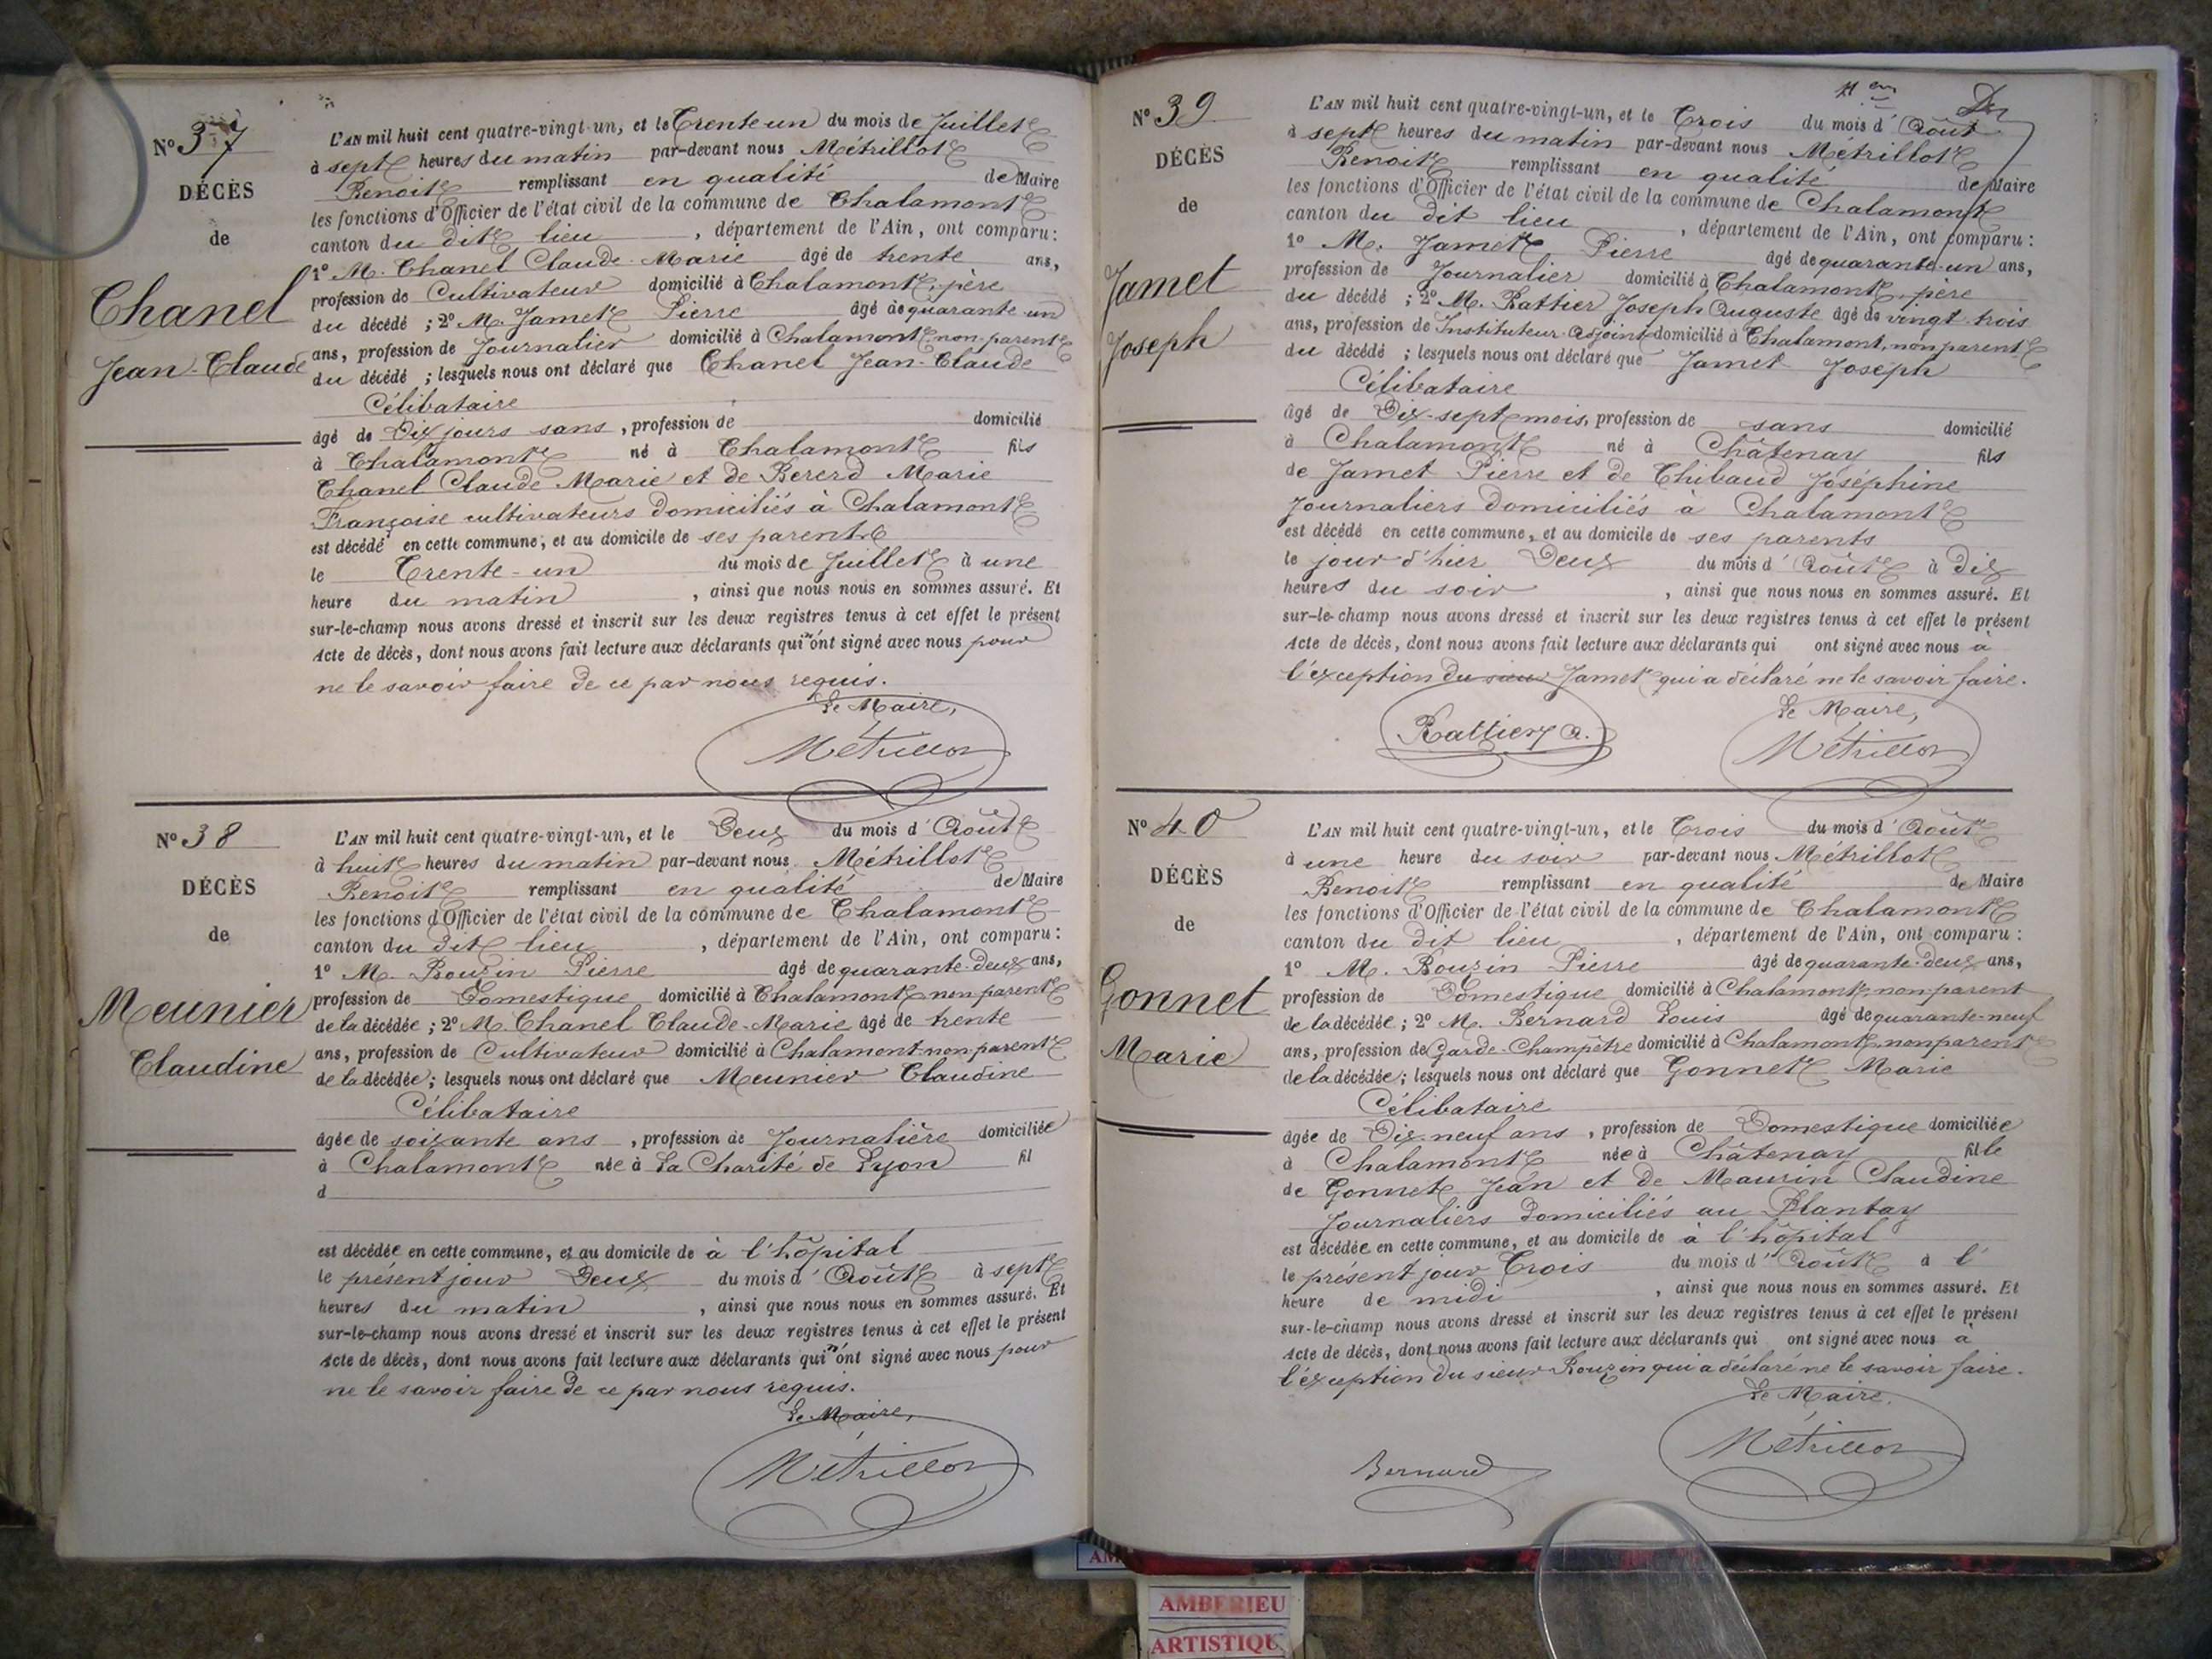 Nº 37
DÉCÈS
de
Chanel
Jean-Claude
L'AN mil huit cent quatre-vingt-un, et le Trente-un du mois de Juillet
à sept heures du matin par-devant nous Métrillot
Benoit remplissant en qualité de Maire
les fonctions d'Officier de l'état civil de la commune de Chalamont
canton du dit lieu, département de l'Ain, ont comparu :
1º M. Chanel Claude-Marie âgé de trente ans,
profession de Cultivateur domicilié à Chalamont, père
du décédé ; 2º M. Jamet Pierre âgé de quarante-un
ans, profession de Journalier domicilié à Chalamont, non-parent
du décédé ; lesquels nous ont déclaré que Chanel Jean-Claude
Célibataire
âgé de Dix jours sans, profession de domicilié
à Chalamont né à Chalamont fils
Chanel Claude Marie et de Bererd Marie
Françoise cultivateurs domiciliés à Chalamont
est décédé en cette commune, et au domicile de ses parents
le Trente-un du mois de Juillet à une
heure du matin, ainsi que nous nous en sommes assuré. Et
sur-le-champ nous avons dressé et inscrit sur les deux registres tenus à cet effet le présent
Acte de décès, dont nous avons fait lecture aux déclarants qui n'ont signé avec nous pour
ne le savoir faire de ce par nous requis.
Le Maire,
Métrillot
Nº 38
DÉCÈS
de
Meunier
Claudine
L'AN mil huit cent quatre-vingt-un, et le Deux du mois d'Août
à huit heures du matin par-devant nous Métrillot
Benoit remplissant en qualité de Maire
les fonctions d'Officier de l'état civil de la commune de Chalamont
canton du dit lieu, département de l'Ain, ont comparu :
1º M. Bouzin Pierre âgé de quarante-deux ans,
profession de Domestique domicilié à Chalamont non parent
de la décédée ; 2º M. Chanel Claude-Marie âgé de trente
ans, profession de Cultivateur domicilié à Chalamont non parent
de la décédée ; lesquels nous ont déclaré que Meunier Claudine
Célibataire
âgée de soixante ans, profession de Journalière domiciliée
à Chalamont née à La Charité de Lyon fil
d
est décédée en cette commune, et au domicile de à l'hôpital
le présent jour Deux du mois d'Août à sept
heures du matin, ainsi que nous nous en sommes assuré. Et
sur-le-champ nous avons dressé et inscrit sur les deux registres tenus à cet effet le présent
Acte de décès, dont nous avons fait lecture aux déclarants qui n'ont signé avec nous pour
ne le savoir faire de ce par nous requis.
Le Maire,
Métrillot
Nº 39
DÉCÈS
de
Jamet
Joseph
L'AN mil huit cent quatre-vingt-un, et le Trois du mois d'Août
à sept heures du matin par-devant nous Métrillot
Benoit remplissant en qualité de Maire
les fonctions d'Officier de l'état civil de la commune de Chalamont
canton du dit lieu, département de l'Ain, ont comparu :
1º M. Jamet Pierre âgé de quarante-un ans,
profession de Journalier domicilié à Chalamont, père
du décédé ; 2º M. Rattier Joseph Auguste âgé de vingt-trois
ans, profession de Instituteur-Adjoint domicilié à Chalamont, non parent
du décédé ; lesquels nous ont déclaré que Jamet Joseph
Célibataire
âgé de Dix-sept mois, profession de sans domicilié
à Chalamont né à Châtenay fils
de Jamet Pierre et de Thibaud Joséphine
Journaliers domiciliés à Chalamont
est décédé en cette commune, et au domicile de ses parents
le jour d'hier Deux du mois d'Août à dix
heures du soir, ainsi que nous nous en sommes assuré. Et
sur-le-champ nous avons dressé et inscrit sur les deux registres tenus à cet effet le présent
Acte de décès, dont nous avons fait lecture aux déclarants qui ont signé avec nous à
l'exception du sieur Jamet qui a déclaré ne le savoir faire.
Le Maire,
Rattier A.
Métrillot
Nº 40
DÉCÈS
de
Gonnet
Marie
L'AN mil huit cent quatre-vingt-un, et le Trois du mois d'Août
à une heure du soir par-devant nous Métrillot
Benoit remplissant en qualité de Maire
les fonctions d'Officier de l'état civil de la commune de Chalamont
canton du dit lieu, département de l'Ain, ont comparu :
1º M. Bouzin Pierre âgé de quarante-deux ans,
profession de Domestique domicilié à Chalamont, non-parent
de la décédée ; 2º M. Bernard Louis âgé de quarante-neuf
ans, profession de Garde-Champêtre domicilié à Chalamont, non parent
de la décédée ; lesquels nous ont déclaré que Gonnet Marie
Célibataire
âgée de Dix-neuf ans, profession de Domestique domiciliée
à Chalamont née à Châtenay fille
de Gonnet Jean et de Maurin Claudine
Journaliers domiciliés au Plantay
est décédée en cette commune, et au domicile de à l'hôpital
le présent jour Trois du mois d'Août à l'
heure de midi, ainsi que nous nous en sommes assuré. Et
sur-le-champ nous avons dressé et inscrit sur les deux registres tenus à cet effet le présent
Acte de décès, dont nous avons fait lecture aux déclarants qui ont signé avec nous à
l'exception du sieur Bouzin qui a déclaré ne le savoir faire.
Le Maire,
Bernard
Métrillot
AMBERIEU
ARTISTIQU